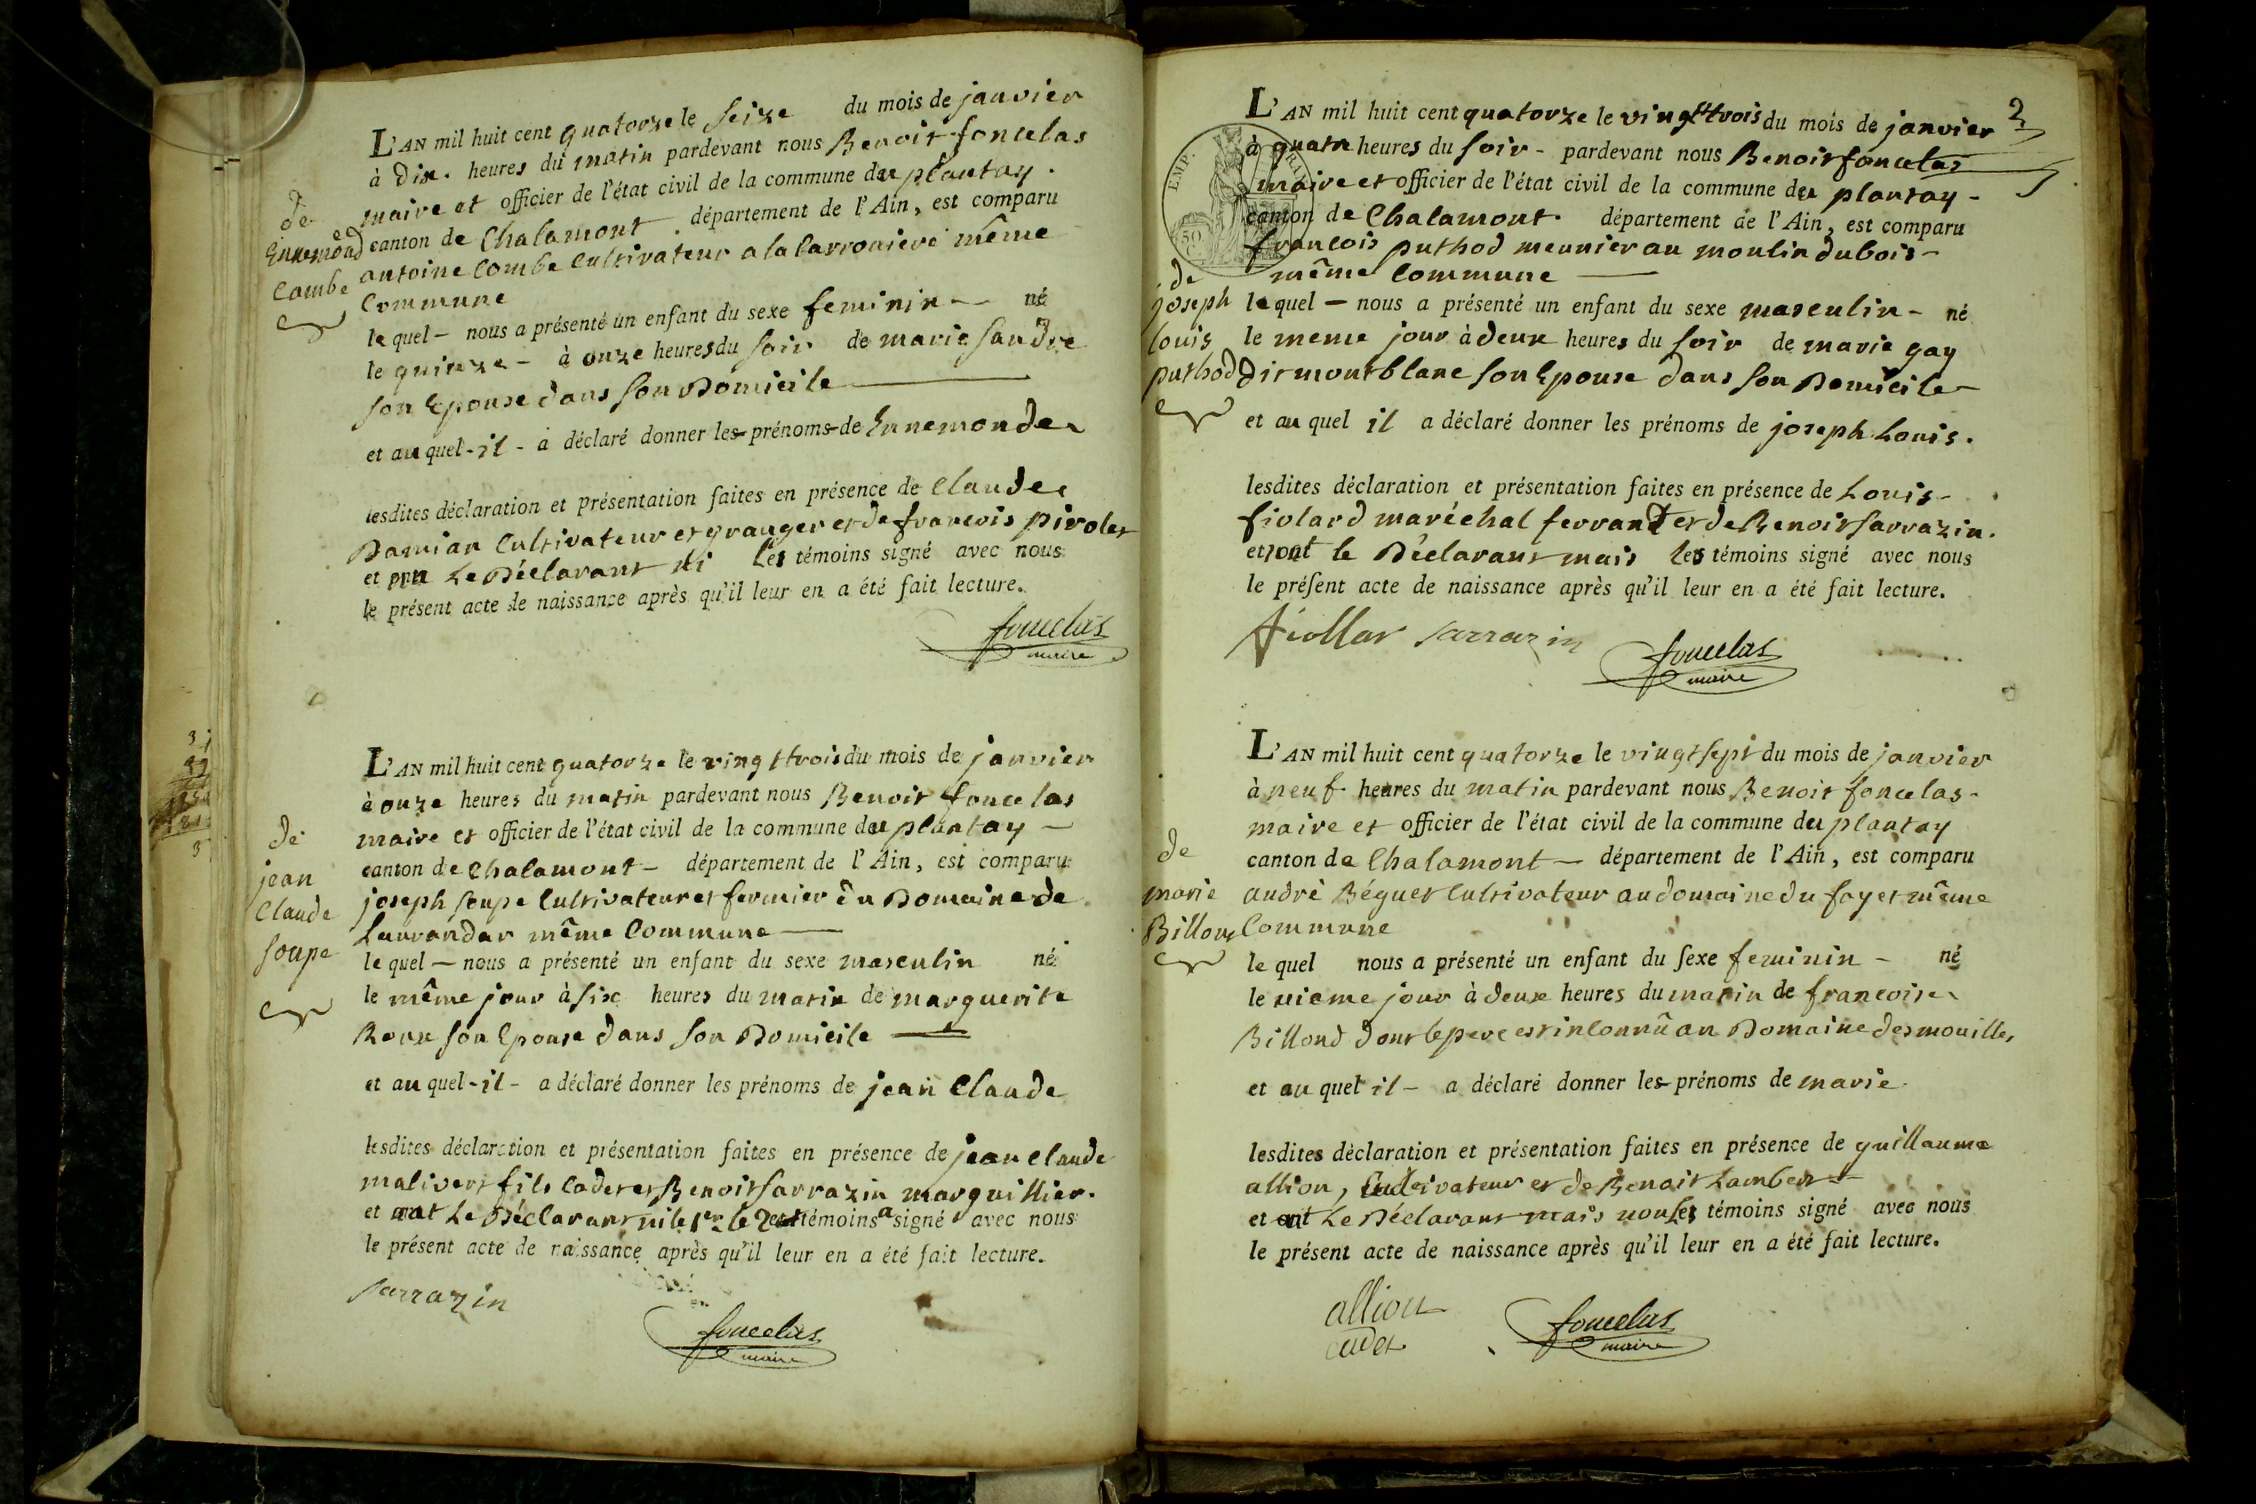 L'AN mil huit cent quatorze le seize du mois de janvier
à dix. heures du matin pardevant nous Benoit foncelas
maire et officier de l'état civil de la commune du plantay.
canton de Chalamont département de l'Ain, est comparu
antoine Combe Cultivateur a la Carroniere même
Commune
de
Ennemond
Combe
le quel - nous a présenté un enfant du sexe feminin - né
le quinze - à onze heures du soir de marie sandre
son Epouse dans son Domicile
et au quel - il - a déclaré donner les prénoms de Ennemonde
lesdites déclaration et présentation faites en présence de Claude
Damian Cultivateur et granger et de francois pirolet
et Le Déclarant ni les témoins signé avec nous
le présent acte de naissance après qu'il leur en a été fait lecture.
foncelas
maire
L'AN mil huit cent quatorze le vingt trois du mois de janvier
à onze heures du matin pardevant nous Benoit foncelas
maire et officier de l'état civil de la commune du plantay -
canton de Chalamont - département de l'Ain, est comparu
joseph soupe Cultivateur et fermier du Domaine de
même Commune
de
jean
Claude
soupe
le quel - nous a présenté un enfant du sexe masculin né
le même jour à six heures du matin de marguerite
Roux son Epouse dans son Domicile
et au quel - il - a déclaré donner les prénoms de jean Claude
lesdites déclaration et présentation faites en présence de jean claude
malivert fils Cadet et Benoit sarrazin marguillier.
et Le Déclarant ni le 1er le 2e témoins a signé avec nous
le présent acte de naissance après qu'il leur en a été fait lecture.
sarrazin
foncelas
maire
2
L'AN mil huit cent quatorze le vingt trois du mois de janvier
à quatre heures du soir - pardevant nous Benoit foncelas
maire et officier de l'état civil de la commune du plantay -
canton de Chalamont. département de l'Ain, est comparu
françois puthod meunier au moulin du bois -
même Commune
EMP.
de
joseph
louis
puthod
le quel - nous a présenté un enfant du sexe masculin - né
le meme jour à deux heures du soir de marie gay
dit montblanc son Epouse dans son Domicile -
et au quel il a déclaré donner les prénoms de joseph Louis.
lesdites déclaration et présentation faites en présence de Louis -
fiolard maréchal ferrant et de Benoit sarrazin.
et le Déclarant mais les témoins signé avec nous
le présent acte de naissance après qu'il leur en a été fait lecture.
fiollar sarrazin
foncelas
maire
L'AN mil huit cent quatorze le vingt sept du mois de janvier
à neuf heures du matin pardevant nous Benoit foncelas -
maire et officier de l'état civil de la commune du plantay
canton de Chalamont - département de l'Ain, est comparu
andré Béguet Cultivateur au domaine du fayet même
Commune
de
marie
Billon
le quel nous a présenté un enfant du sexe feminin - né
le même jour à deux heures du matin de francoise
Billond dont le pere est inconnû au Domaine des mouilles
et au quel il - a déclaré donner les prénoms de marie.
lesdites déclaration et présentation faites en présence de guillaume
allion, Cultivateur et de Benoit Lambert
et Le Déclarant mais non les témoins signé avec nous
le présent acte de naissance après qu'il leur en a été fait lecture.
alliou
cadet
foncelas
maire